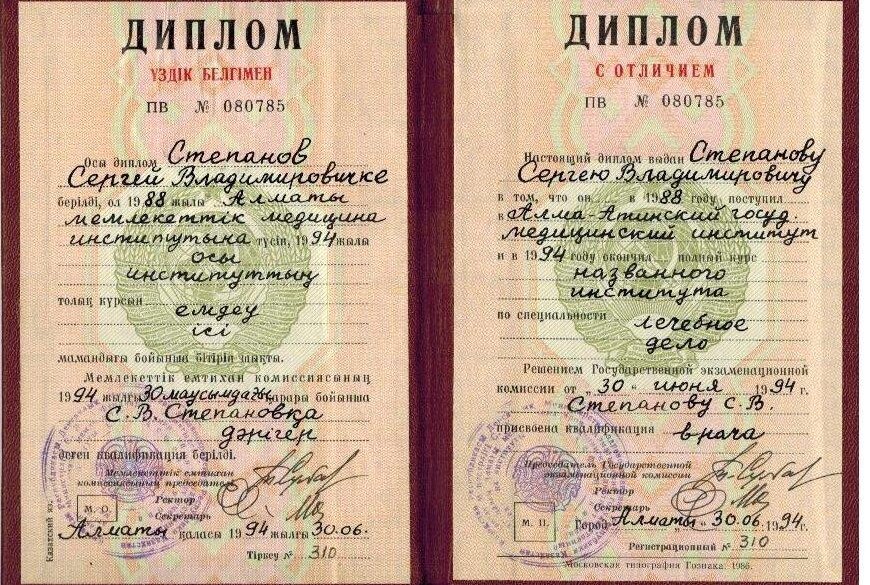 ДИПЛОМ
ҮЗДІК БЕЛГІМЕН
ПВ № 080785
Осы диплом Степанов
Сергей Владимировичке
берілді, ол 1988 жылы Алматы
мемлекеттік медицина
институтына түсіп, 1994 жылы
осы
институттың
толық курсын
емдеу
ісі
мамандығы бойынша бітіріп шықты.
Мемлекеттік емтихан комиссиясының
1994 жылғы 30 маусымдағы қарары бойынша
С.В. Степановқа
дәрігер
деген квалификация берілді.
Мемлекеттік емтихан
комиссиясының председателі
Ректор
Секретарь
М. О.
Алматы қаласы 1994 жылғы 30.06.
Тіркеу № 310
Казахский яз.
ДИПЛОМ
С ОТЛИЧИЕМ
ПВ № 080785
Настоящий диплом выдан Степанову
Сергею Владимировичу
в том, что он в 1988 году поступил
в Алма-Атинский госуд.
медицинский институт
и в 1994 году окончил полный курс
названного
института
по специальности
лечебное
дело
Решением Государственной экзаменационной
комиссии от „30“ июня 1994 г.
Степанову С.В.
присвоена квалификация
врача
Председатель Государственной
экзаменационной комиссии
Ректор
Секретарь
М. П.
Город Алматы „ “ 30.06. 1994 г.
Регистрационный № 310
Московская типография Гознака. 1986.